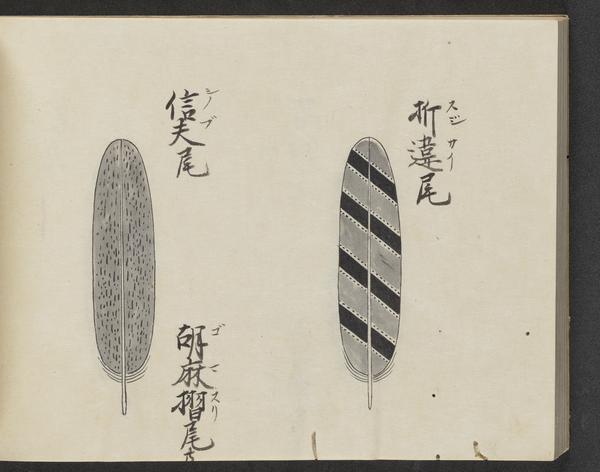 折違尾
スジカイ
信夫尾
シノブ
胡麻摺尾
ゴマスリ